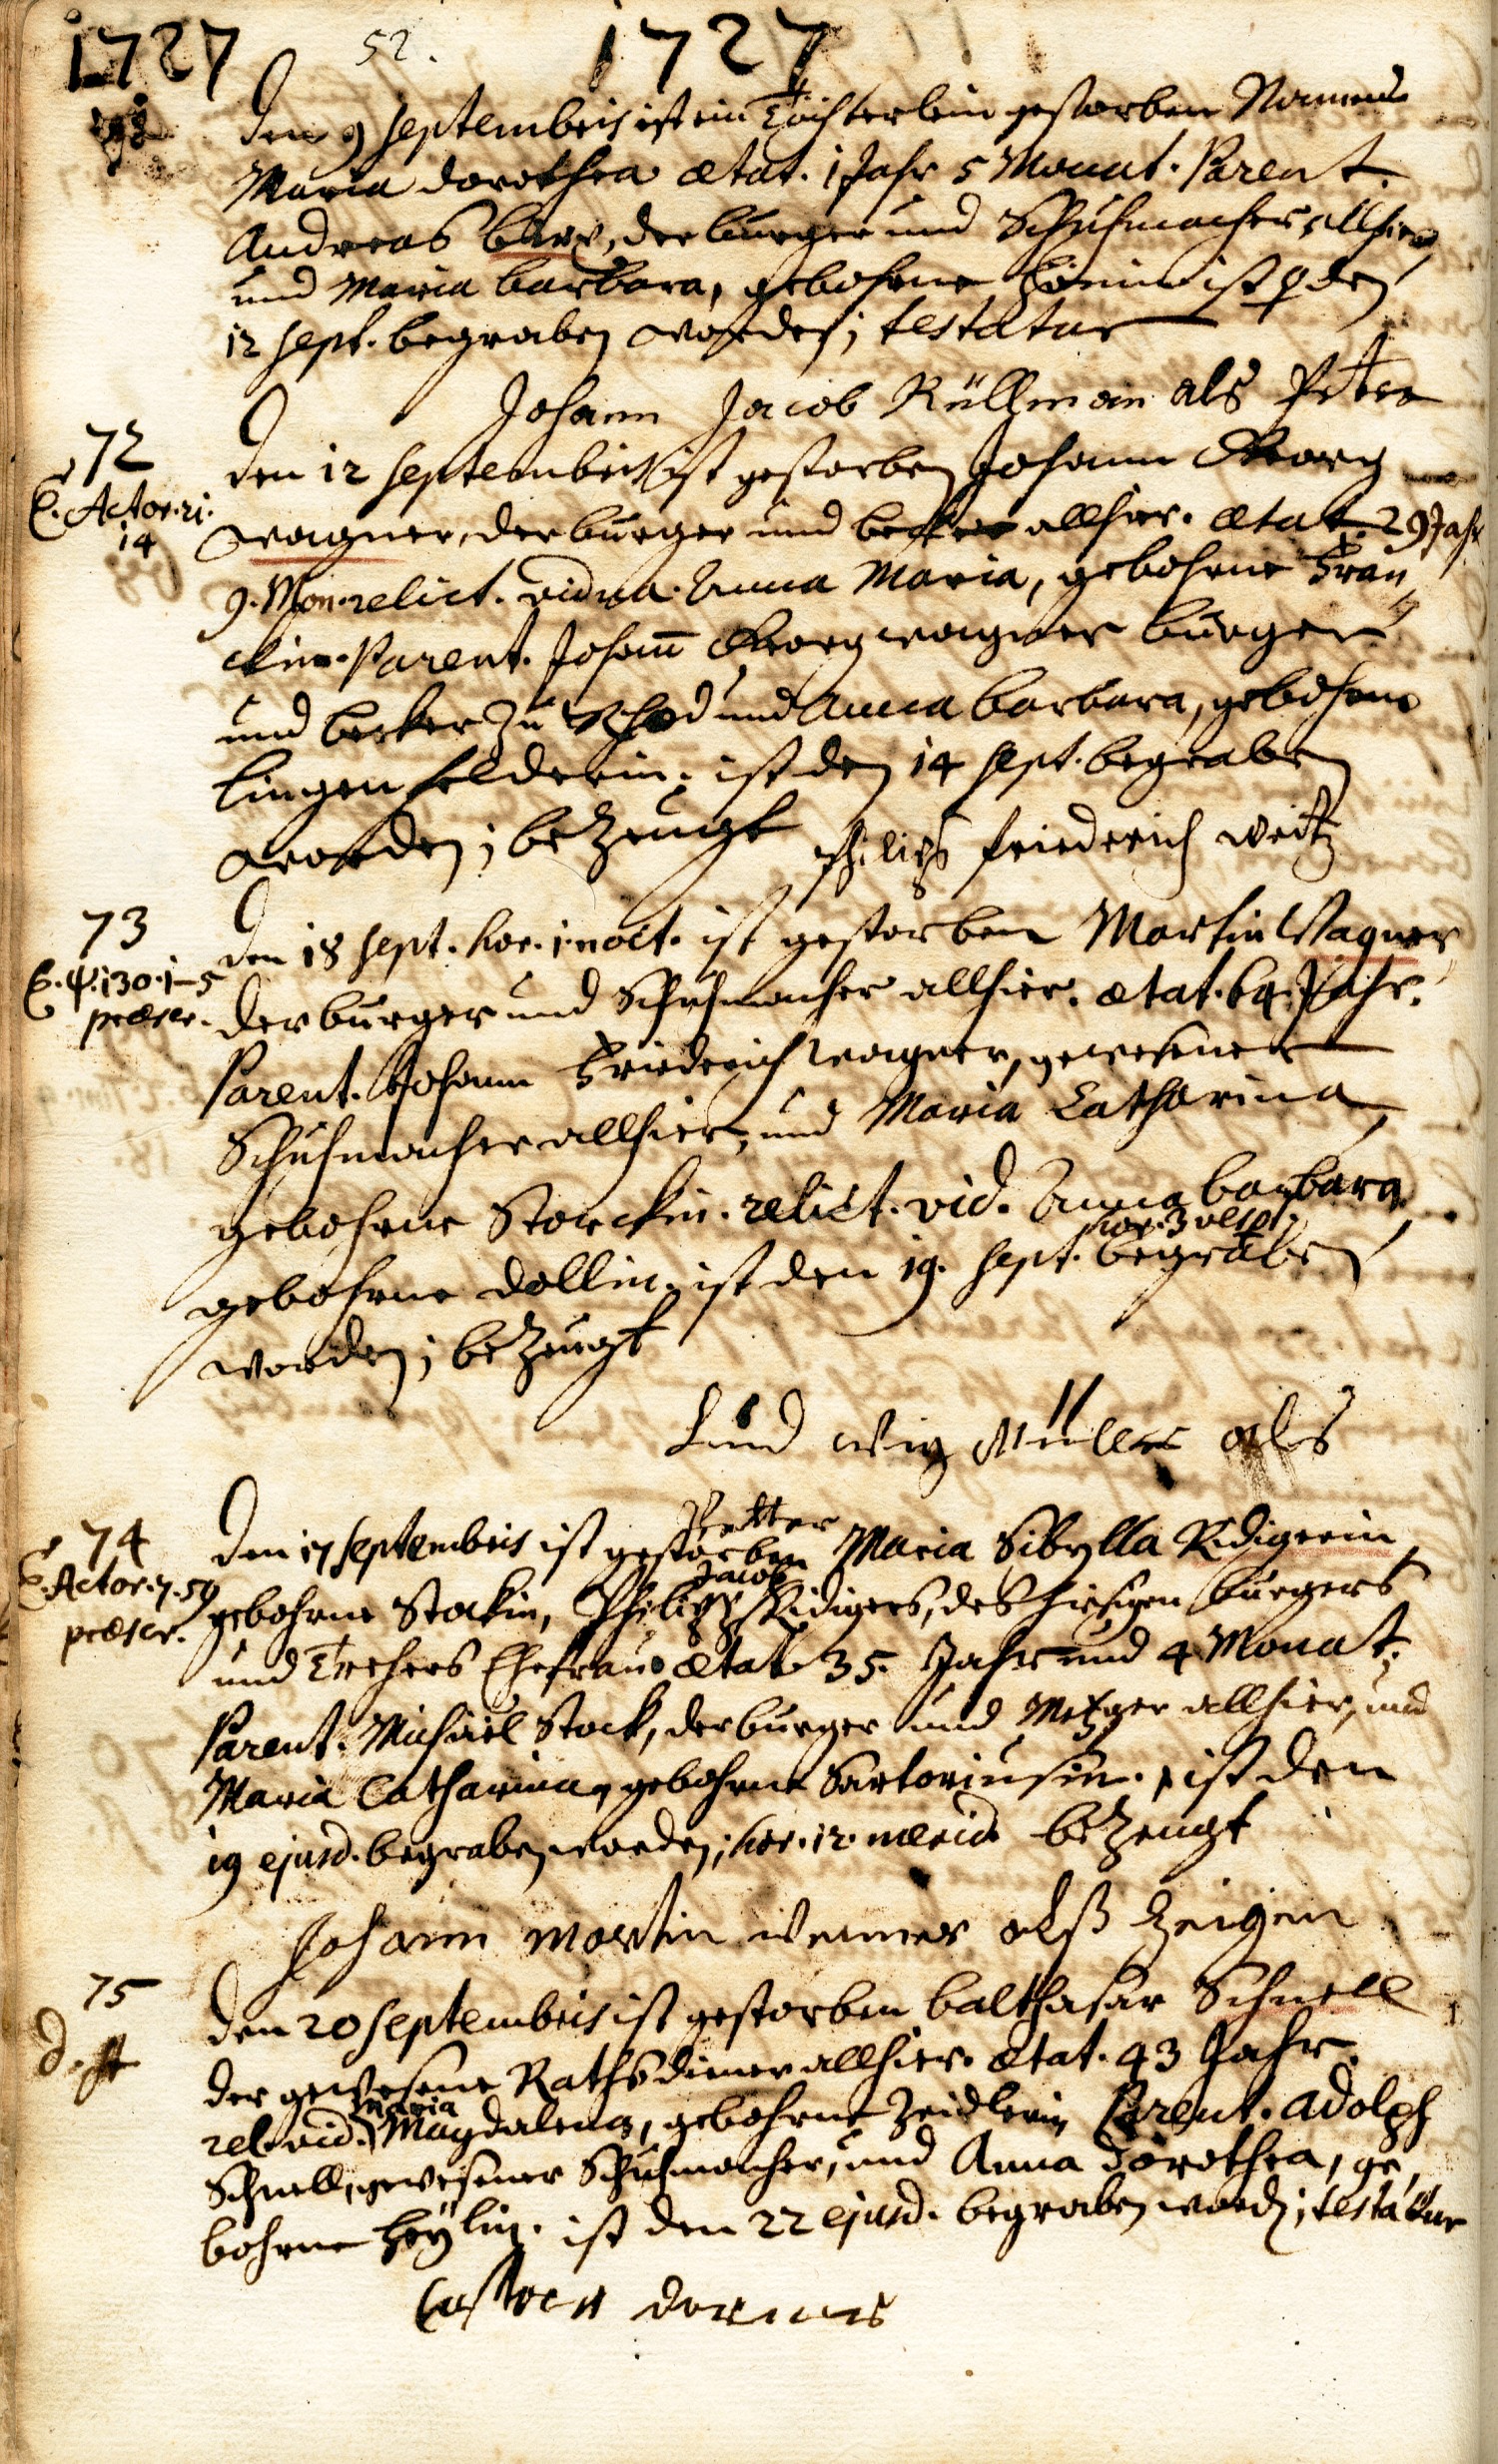 1727 52. 1727
Den 9 Septembris ist ein Töchterlein gestorben Nomine
Maria Dorothea ætat. 1 Jahr 5 Monat. Parent.
Andreas, der burger und Schuhmacher allhier,
und Maria barbara, gebohrne ist den
12 Sept. begraben worden; testatur
Johann Jacob Rüllman als Petter
72
Den 12 Septembris ist gestorben Johann Georg
C. Actor. 21.
14
Wagner, der burger und becker allhier. ætat. 29 Jahr
9. Mon. relict. vidua. Anna Maria, gebohrne Fran,,
ckin. Parent. Johann Georg wagner burger
und becker zu und Anna barbara, gebohrne
Lingenfelderin. ist den 14 Sept. begraben
worden; bezeugt Philips friederich weitz
73
Den 18 Sept. hor. 1. noct. ist gestorben Martin Wagner
C. ψ. 130. 1-5
præscr.
der burger und Schuhmacher allhier. ætat. 64. Jahr.
Parent. Johann Friederich wagner, gewesener
Schuhmacher allhier, und Maria Catharina
gebohrne Storckin. relict. vid. Anna barbara,
gebohrne Dollin. ist den 19. Sept. hor. 3 vesp. begraben
worden; bezeugt
Lud wig Müller als
Petter
74
Den 17 Septembris ist gestorben Maria Sibylla Ridigerin
C. Actor. 7. 59
præscr.
gebohrne Stockin, Philipp Jacob Ridigers, des hiesigen burgers
und Ehefrau ætat. 35. Jahr und 4 Monat.
Parent. Michael Stock, der burger und Metzger allhier, und
Maria Catharina, gebohrne Sartoriusin. ist den
19 ejusd. begraben worden; hor. 12. merid. bezeugt
Johann Martin werner alß zeigen
75
Den 20 Septembris ist gestorben balthasar Schnell
der gewesene Rathsdiener allhier. ætat. 43 Jahr.
rel. vid. Maria Magdalena, gebohrne Zeidlerin Parent. Adolph
Schnell, gewesener Schuhmacher, und Anna Dorothea, ge,,
bohrne Heylin. ist den 22 ejusd. begraben word; testatur